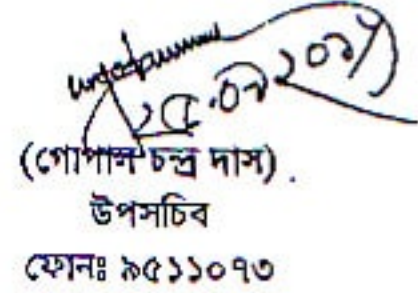 (গোপাল চন্দ্র দাস)
উপসচিব
ফোনঃ ৯৫১১০৭৩